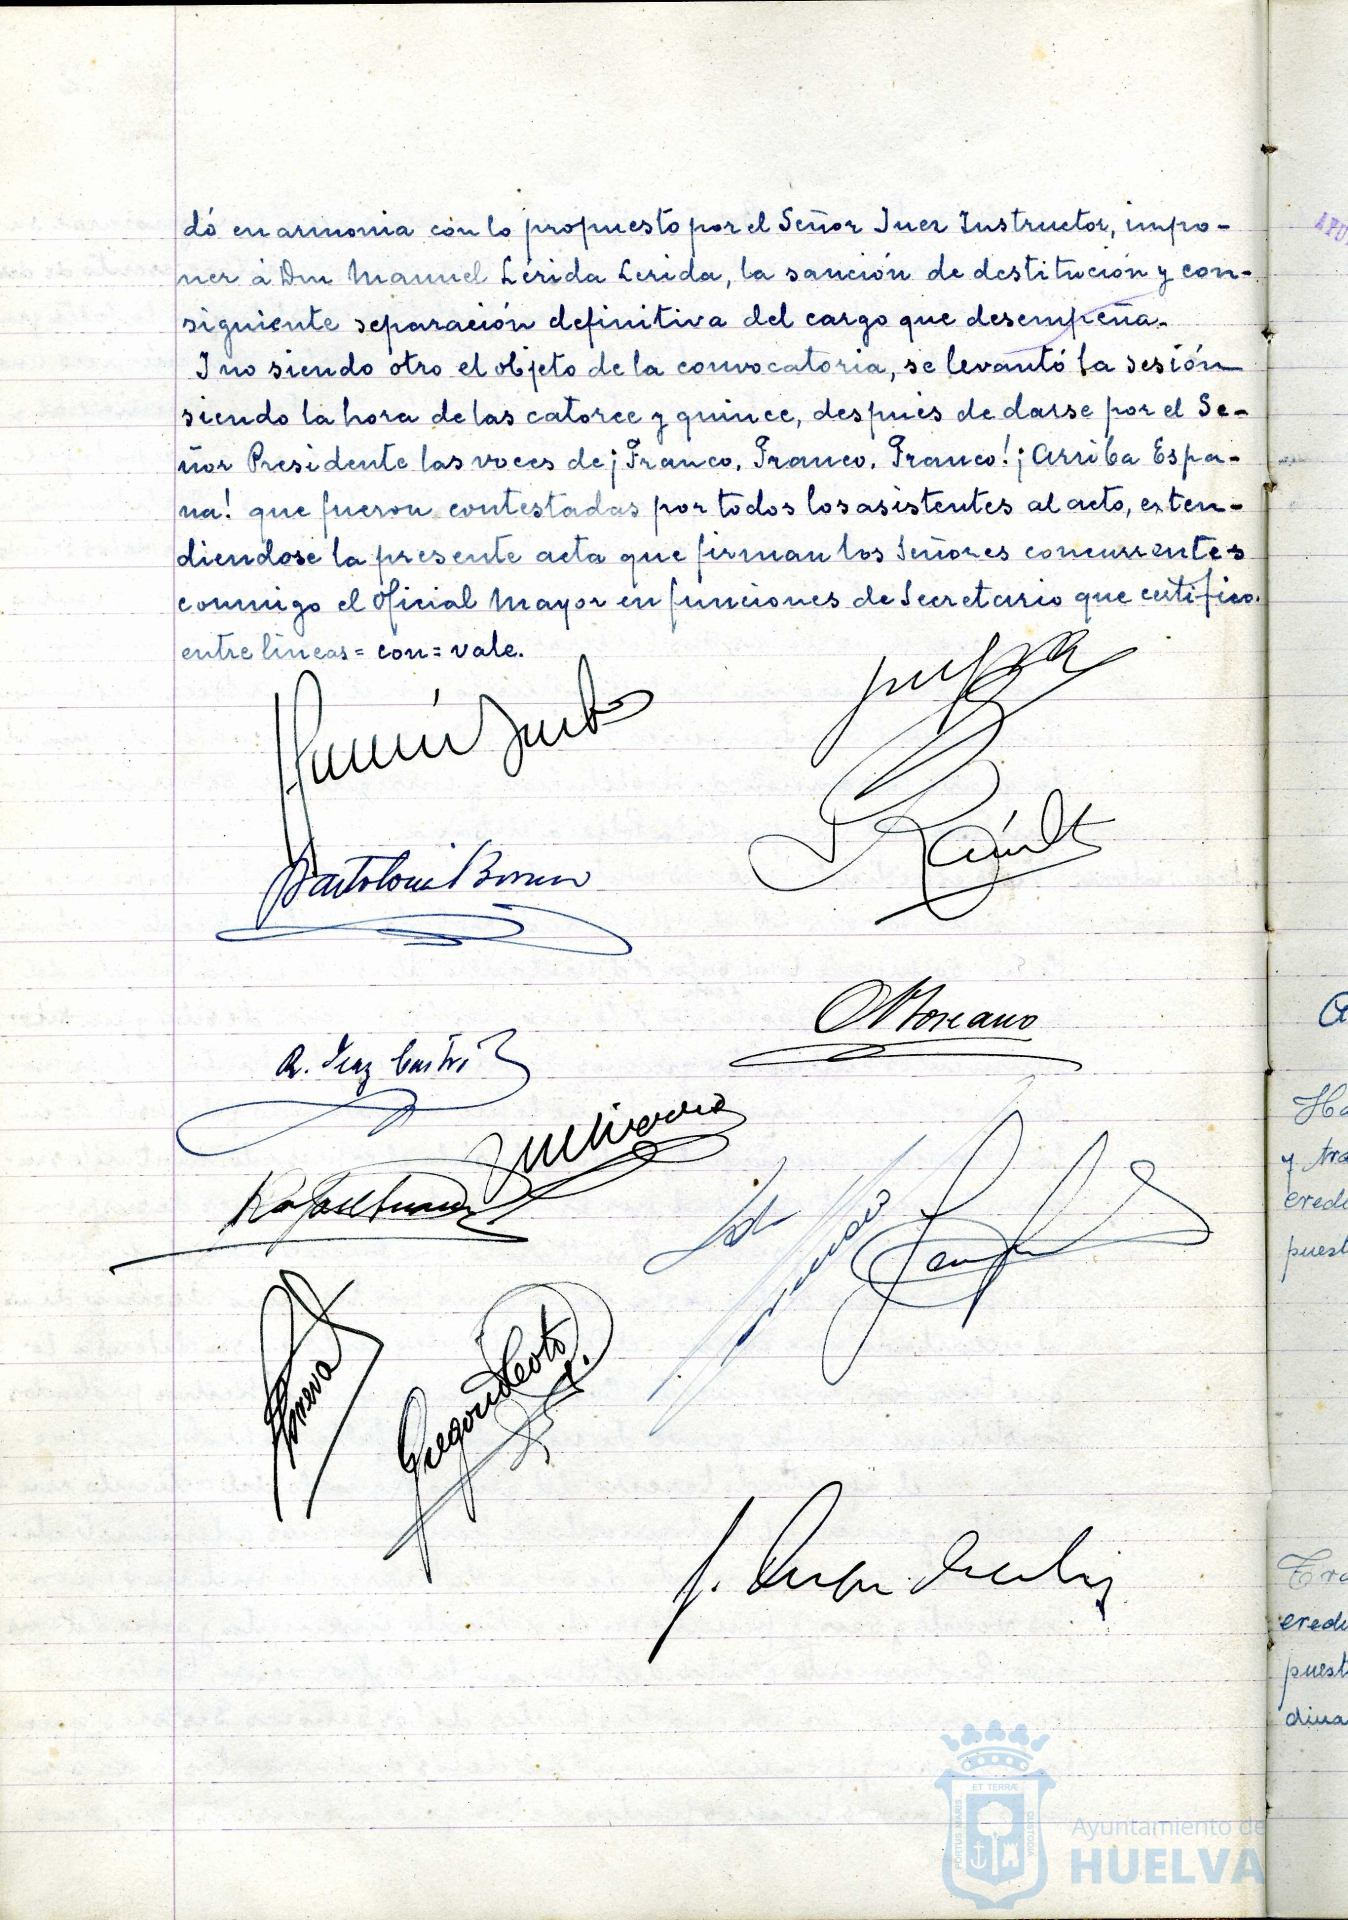 dó en armonia con lo propuesto por el Señor Juez Instructor, impo-
ner á Don Manuel Lérida Lerida, la sanción de destitución y con-
siguiente separación definitiva del cargo que desempeña.
I no siendo otro el objeto de la convocatoria, se levantó la sesión
siendo la hora de las catorce y quince, después de darse por el Se-
ñor Presidente las voces de ¡Franco, Franco, Franco! ¡Arriba Espa-
na! que fueron contestadas por todos los asistentes al acto, exten-
diendose la presente acta que firman los Señores concurrentes
conmigo el Oficial Mayor en funciones de Secretario que certifico.
entre lineas = con = vale.
Bartolomé
R. Diaz
Gregorio
y
puest
puest
ET TERRÆ
PORTUS MARIS
CUSTODIA
Ayuntamiento de
HUELVA